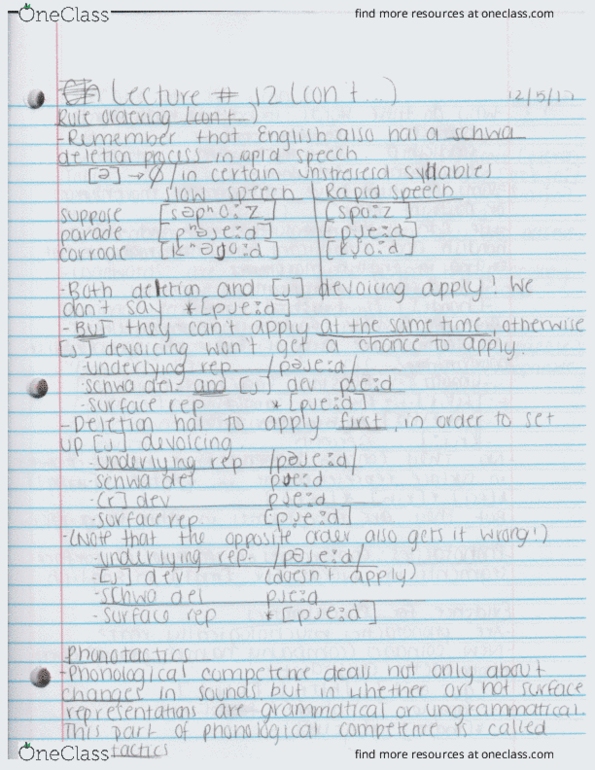 OneClass
find more resources at oneclass.com
Lecture # 12 (con't...)
12/5/17
Rule ordering (con't...)
-Remember that English also has a schwa
deletion process in rapid speech
[ə] → ∅/in certain unstressed syllables
slow speech | Rapid speech
suppose [səpʰo:z] [spo:z]
parade [pʰəɹe:d] [pɹe:d]
corrode [kʰəɹo:d] [kɹo:d]
-Both deletion and [ɹ] devoicing apply! We
don't say *[pɹe:d]
-BUT they can't apply at the same time, otherwise
[ɹ] devoicing won't get a chance to apply.
-underlying rep /pəɹe:d/
-schwa del and [ɹ] dev pɹe:d
-surface rep *[pɹe:d]
-Deletion has to apply first, in order to set
up [ɹ] devoicing
-underlying rep /pəɹe:d/
-schwa del pɹe:d
-[r] dev pɹe:d
-surface rep [pɹe:d]
-(Note that the opposite order also gets it wrong!)
-underlying rep. /pəɹe:d/
-[ɹ] dev (doesn't apply)
-schwa del pɹe:d
-surface rep *[pɹe:d]
Phonotactics
-Phonological competence deals not only about
changes in sounds but in whether or not surface
representations are grammatical or ungrammatical.
This part of phonological competence is called
tactics
OneClass
find more resources at oneclass.com